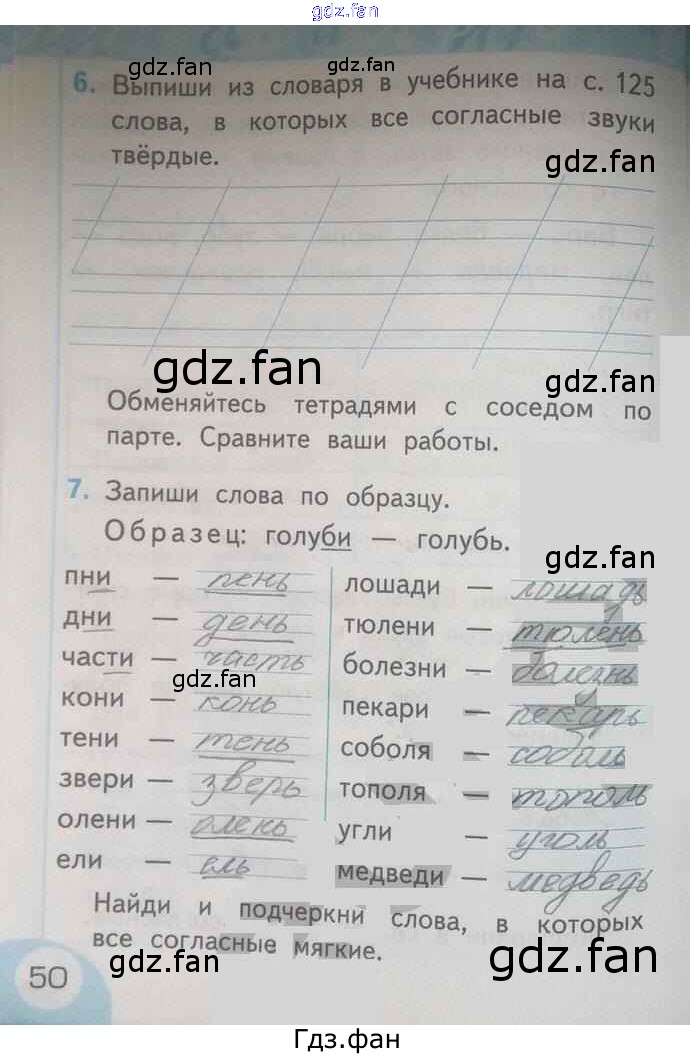 gdz.fan
gdz.fan
gdz.fan
6. Выпиши из словаря в учебнике на с. 125
слова, в которых все согласные звуки
твёрдые.
gdz.fan
gdz.fan
gdz.fan
Обменяйтесь тетрадями с соседом по
парте. Сравните ваши работы.
7. Запиши слова по образцу.
Образец: голуби — голубь.
gdz.fan
пни — пень
дни — день
части — часть
gdz.fan
кони — конь
тени — тень
звери — зверь
олени — олень
ели — ель
лошади — лошадь
тюлени — тюлень
болезни — болезнь
пекари — пекарь
соболя — соболь
тополя — тополь
угли — уголь
медведи — медведь
Найди и подчеркни слова, в которых
все согласные мягкие.
gdz.fan
gdz.fan
50
Гдз.фан